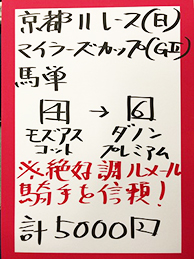 京都11レース(日)
マイラーズカップ(GⅡ)
馬単
4 → 6
モズアス ダノン
コット プレミアム
※絶好調ルメール
騎手を信頼!
計5000円